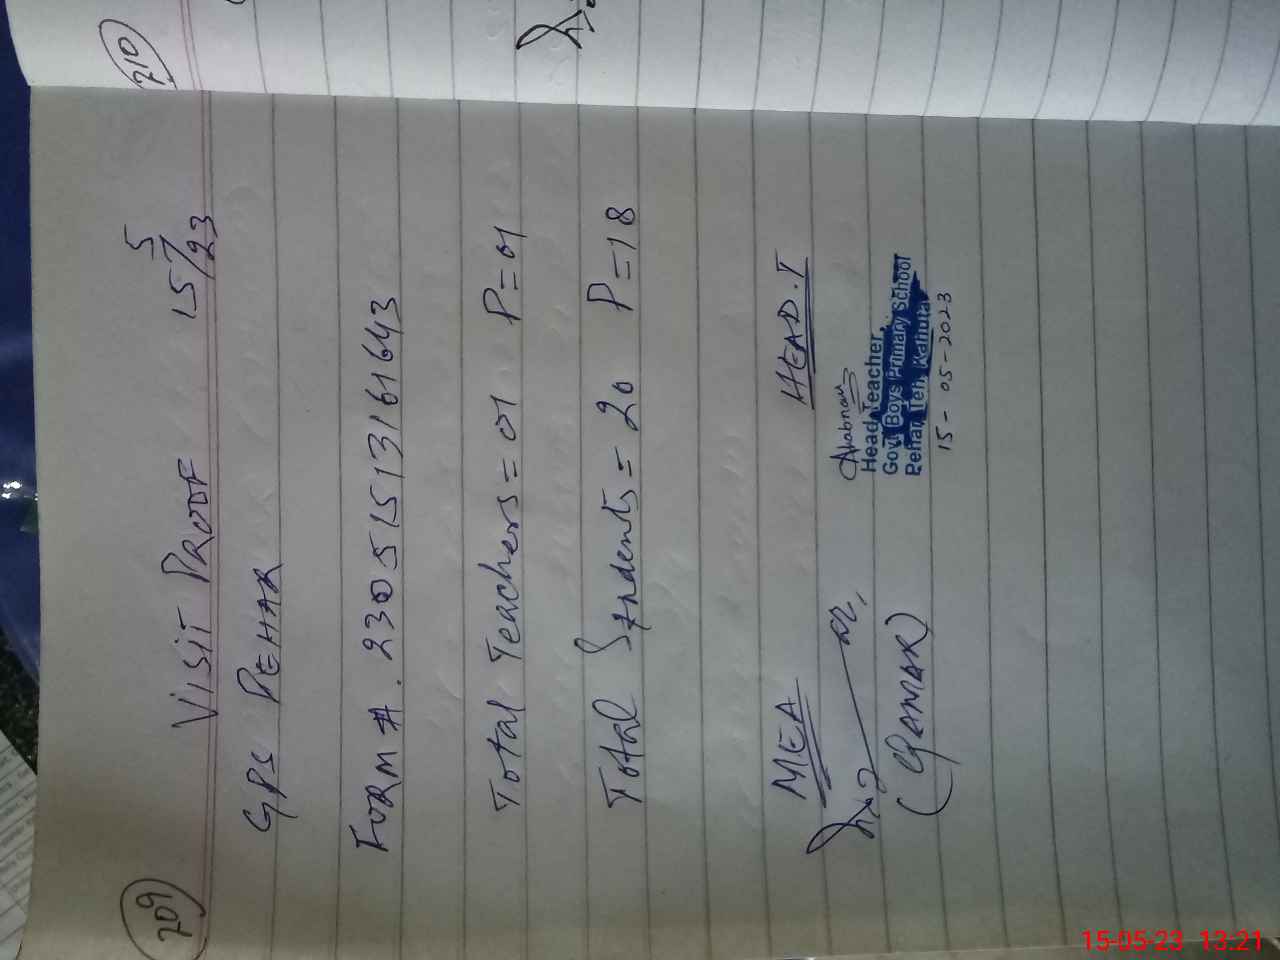 209
VISIT PROOF 15/5/23
GPS PEHAR
FORM #. 23051513161643
Total Teachers = 01 P = 01
Total Students = 20 P = 18
MEA HEAD.T
(QAMAR)
Shabnam
Head Teacher,
Govt Boys Primary School
Pehar Teh, Kahuta
15-05-2023
210
15-05-23 13:21